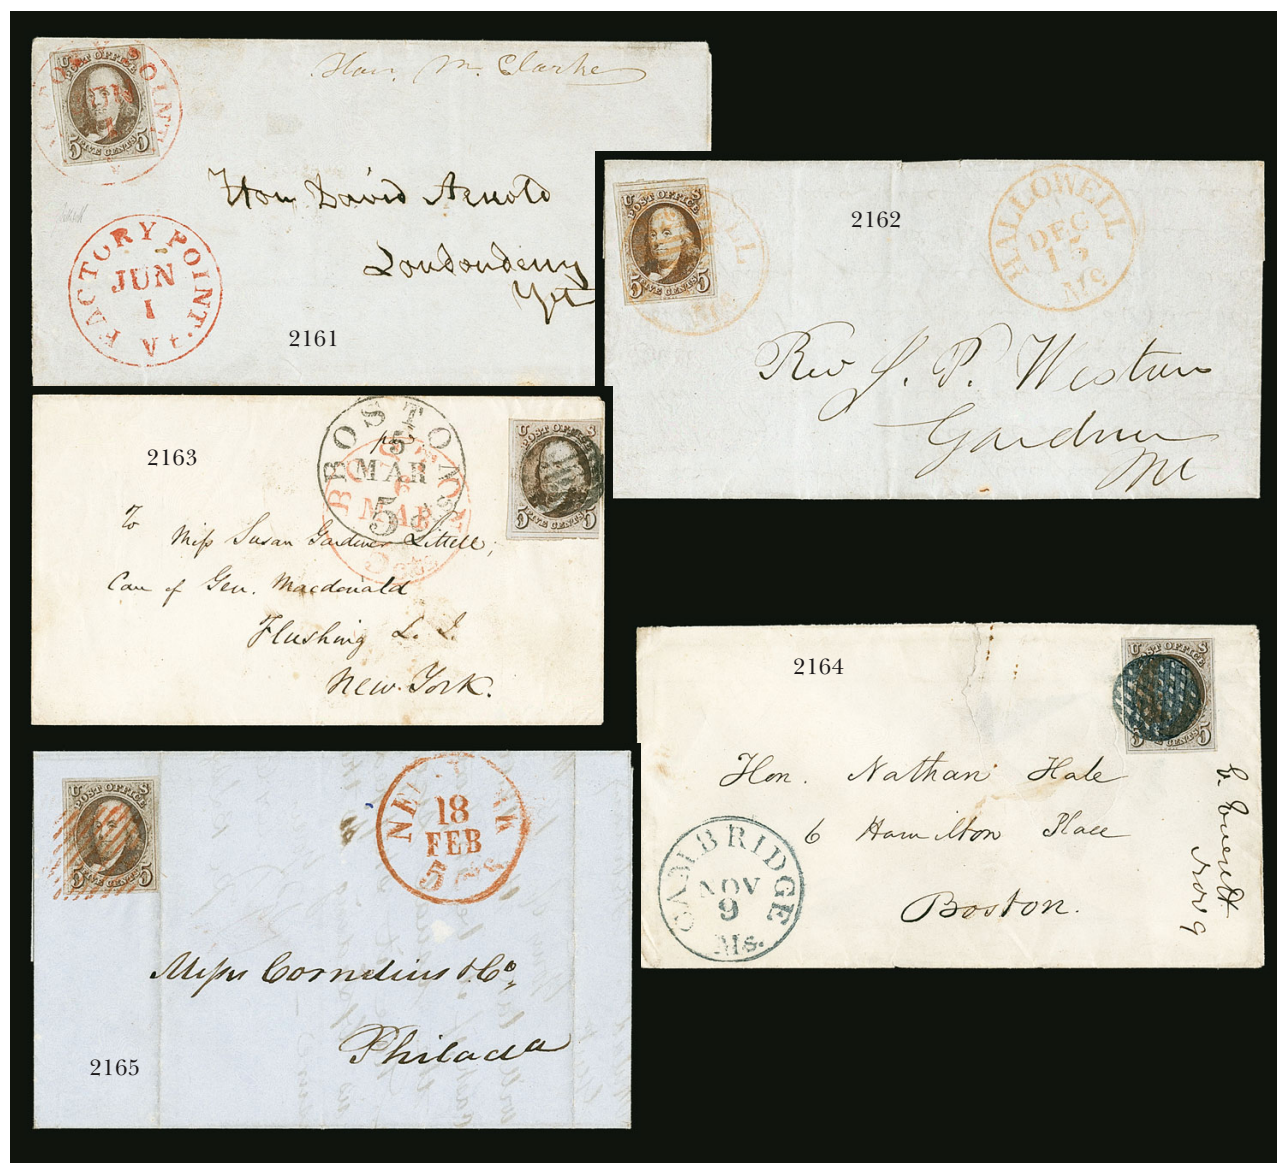 U S
POST OFFICE
5 FIVE CENTS 5
POINT
Hon. M. Clarke
Hon David Arnold
Londonderry
FACTORY POINT. Vt
JUN
1
2161
U S
POST OFFICE
5 FIVE CENTS 5
2162
HALLOWELL
DEC
13
Me
Rev J. P. Weston
Gardiner
Me
2163
BOSTON
5
MAR
5 cts
BOSTON
6
MAR
5 cts
U S
POST OFFICE
5 FIVE CENTS 5
To
Miss Susan Gardiner Littell,
Care of Gen. Macdonald
Flushing L. I.
New York.
2164
U S
POST OFFICE
5 FIVE CENTS 5
Hon. Nathan Hale
6 Hamilton Place
Boston.
CAMBRIDGE
NOV
9
Ms.
E. Everett
Nov 9
U S
POST OFFICE
5 FIVE CENTS 5
NEW YORK
18
FEB
5 cts
Messrs Cornelius & Co,
Philada
2165